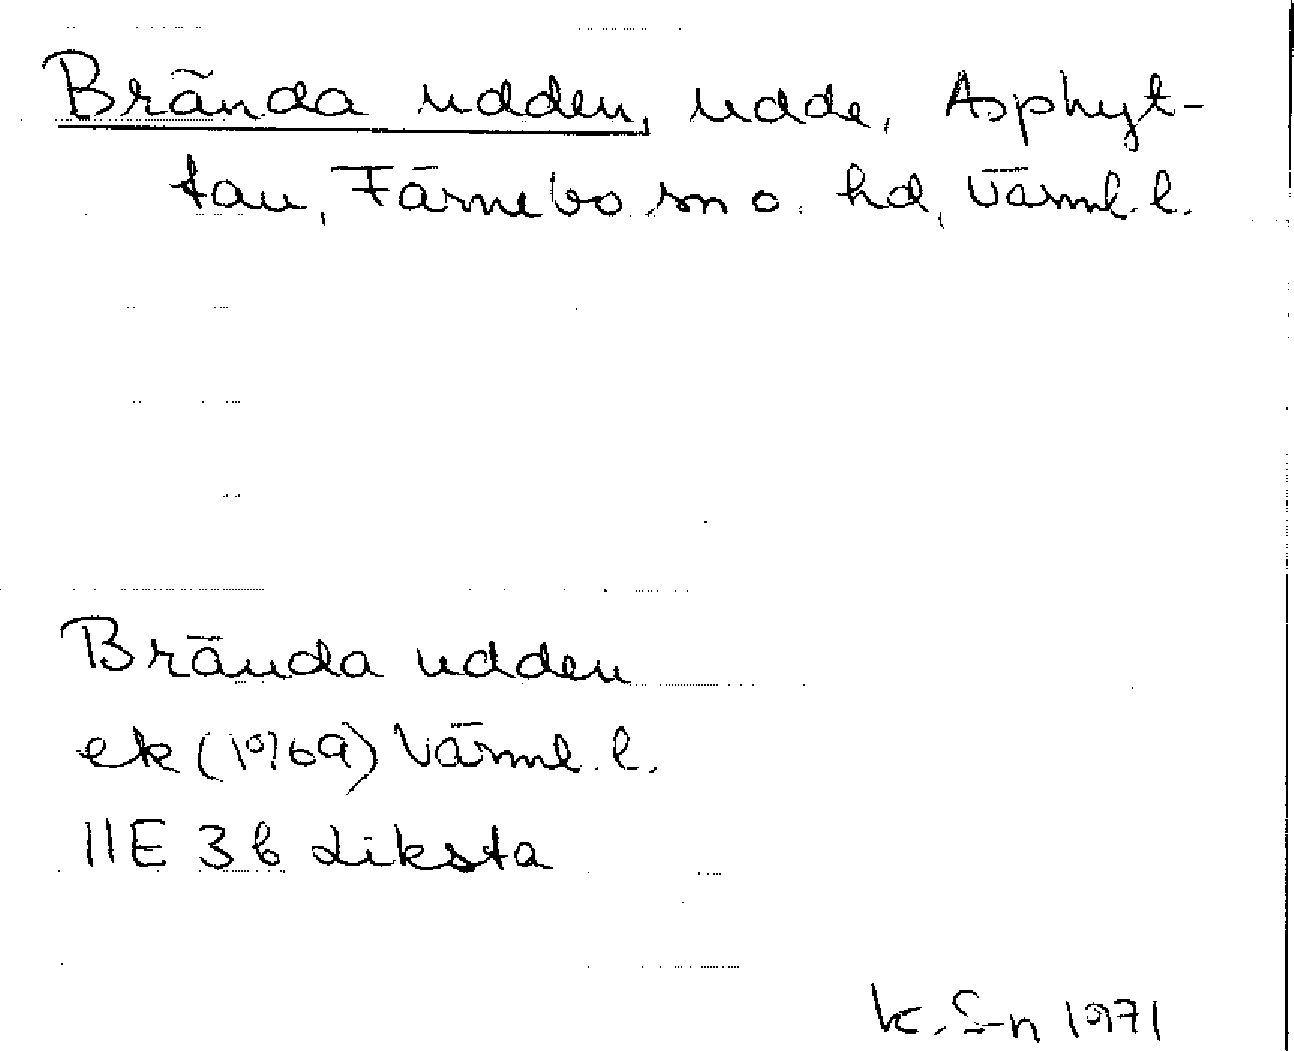 Brända udden, udde, Asphyt-
tan, Färnebo sn o. hd, Värml. l.
Brända udden
ek (1969) Värml. l.
11E 3b Liksta
K. S-n 1971